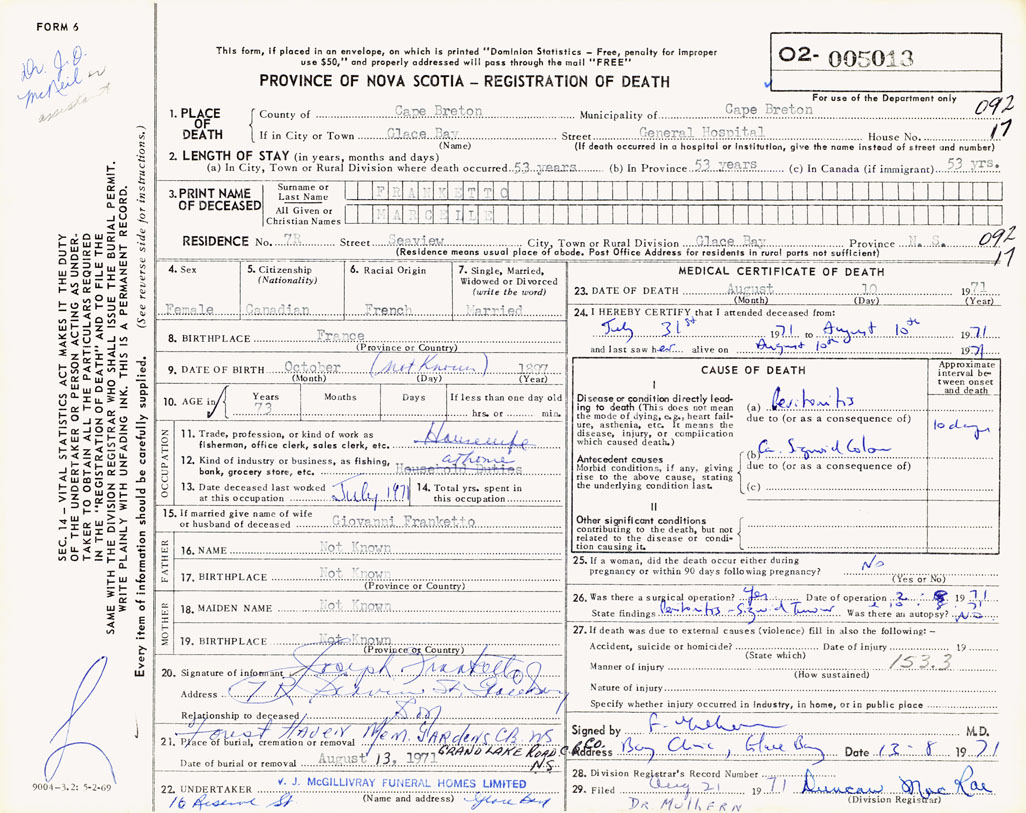 FORM 6
Dr. J. D. McNeil
This form, if placed in an envelope, on which is printed "Dominion Statistics – Free, penalty for improper
use $50," and properly addressed will pass through the mail "FREE"
PROVINCE OF NOVA SCOTIA – REGISTRATION OF DEATH
02- 005013
For use of the Department only
092
17
1. PLACE OF DEATH
County of Cape Breton Municipality of Cape Breton
If in City or Town Glace Bay Street General Hospital House No.
(Name) (If death occurred in a hospital or institution, give the name instead of street and number)
2. LENGTH OF STAY (in years, months and days)
(a) In City, Town or Rural Division where death occurred 53 years (b) In Province 53 years (c) In Canada (if immigrant) 53 yrs.
3. PRINT NAME OF DECEASED
Surname or Last Name FRANKETTO
All Given or Christian Names MARCELLE
RESIDENCE No. 7R Street Seaview City, Town or Rural Division Glace Bay Province N. S.
(Residence means usual place of abode. Post Office Address for residents in rural parts not sufficient)
092
17
4. Sex
Female
5. Citizenship (Nationality)
Canadian
6. Racial Origin
French
7. Single, Married, Widowed or Divorced (write the word)
Married
8. BIRTHPLACE France
(Province or Country)
9. DATE OF BIRTH October (not Known) 1897
(Month) (Day) (Year)
10. AGE in Years 73 Months Days If less than one day old hrs. or min.
OCCUPATION
11. Trade, profession, or kind of work as fisherman, office clerk, sales clerk, etc. Housewife
12. Kind of industry or business, as fishing, bank, grocery store, etc. at home Household Duties
13. Date deceased last worked at this occupation July 1971
14. Total yrs. spent in this occupation
15. If married give name of wife or husband of deceased Giovanni Franketto
FATHER
16. NAME Not Known
17. BIRTHPLACE Not Known
(Province or Country)
MOTHER
18. MAIDEN NAME Not Known
19. BIRTHPLACE Not Known
(Province or Country)
20. Signature of informant Joseph Franketto
Address 7R Seaview St. Glace Bay
Relationship to deceased Son
21. Place of burial, cremation or removal Forest Haven Mem. Gardens C.B. NS
GRAND LAKE ROAD C.B. Co. N.S.
Date of burial or removal August 13, 1971
22. UNDERTAKER V. J. McGILLIVRAY FUNERAL HOMES LIMITED
(Name and address)
16 Reserve St Glace Bay
MEDICAL CERTIFICATE OF DEATH
23. DATE OF DEATH August 10 1971
(Month) (Day) (Year)
24. I HEREBY CERTIFY that I attended deceased from:
July 31st 1971 to August 10th 1971
and last saw her alive on August 10th 1971
CAUSE OF DEATH
Approximate interval between onset and death
I
Disease or condition directly leading to death (This does not mean the mode of dying, e.g., heart failure, asthenia, etc. It means the disease, injury, or complication which caused death.)
(a) Peritonitis
due to (or as a consequence of)
10 days
Antecedent causes
Morbid conditions, if any, giving rise to the above cause, stating the underlying condition last.
(b) Ca. Sigmoid Colon
due to (or as a consequence of)
(c)
II
Other significant conditions
contributing to the death, but not related to the disease or condition causing it.
25. If a woman, did the death occur either during pregnancy or within 90 days following pregnancy? No
(Yes or No)
26. Was there a surgical operation? Yes Date of operation 2 : 8 1971
State findings Peritonitis - Sigmoid Tumor Was there an autopsy? No
27. If death was due to external causes (violence) fill in also the following: –
Accident, suicide or homicide? Date of injury 19
(State which)
Manner of injury 153.3
(How sustained)
Nature of injury
Specify whether injury occurred in Industry, in home, or in public place
Signed by F. Mulhern M.D.
Address Bay Clinic, Glace Bay Date 13-8 1971
28. Division Registrar's Record Number
29. Filed Aug 21 1971 Duncan MacRae
(Division Registrar)
DR MULHERN
SEC. 14 – VITAL STATISTICS ACT MAKES IT THE DUTY
OF THE UNDERTAKER OR PERSON ACTING AS UNDER-
TAKER TO OBTAIN ALL THE PARTICULARS REQUIRED
IN THE "REGISTRATION OF DEATH" AND TO FILE THE
SAME WITH THE DIVISION REGISTRAR WHO SHALL ISSUE THE BURIAL PERMIT.
WRITE PLAINLY WITH UNFADING INK. THIS IS A PERMANENT RECORD.
Every item of information should be carefully supplied. (See reverse side for instructions.)
9004-3.2: 5-2-69